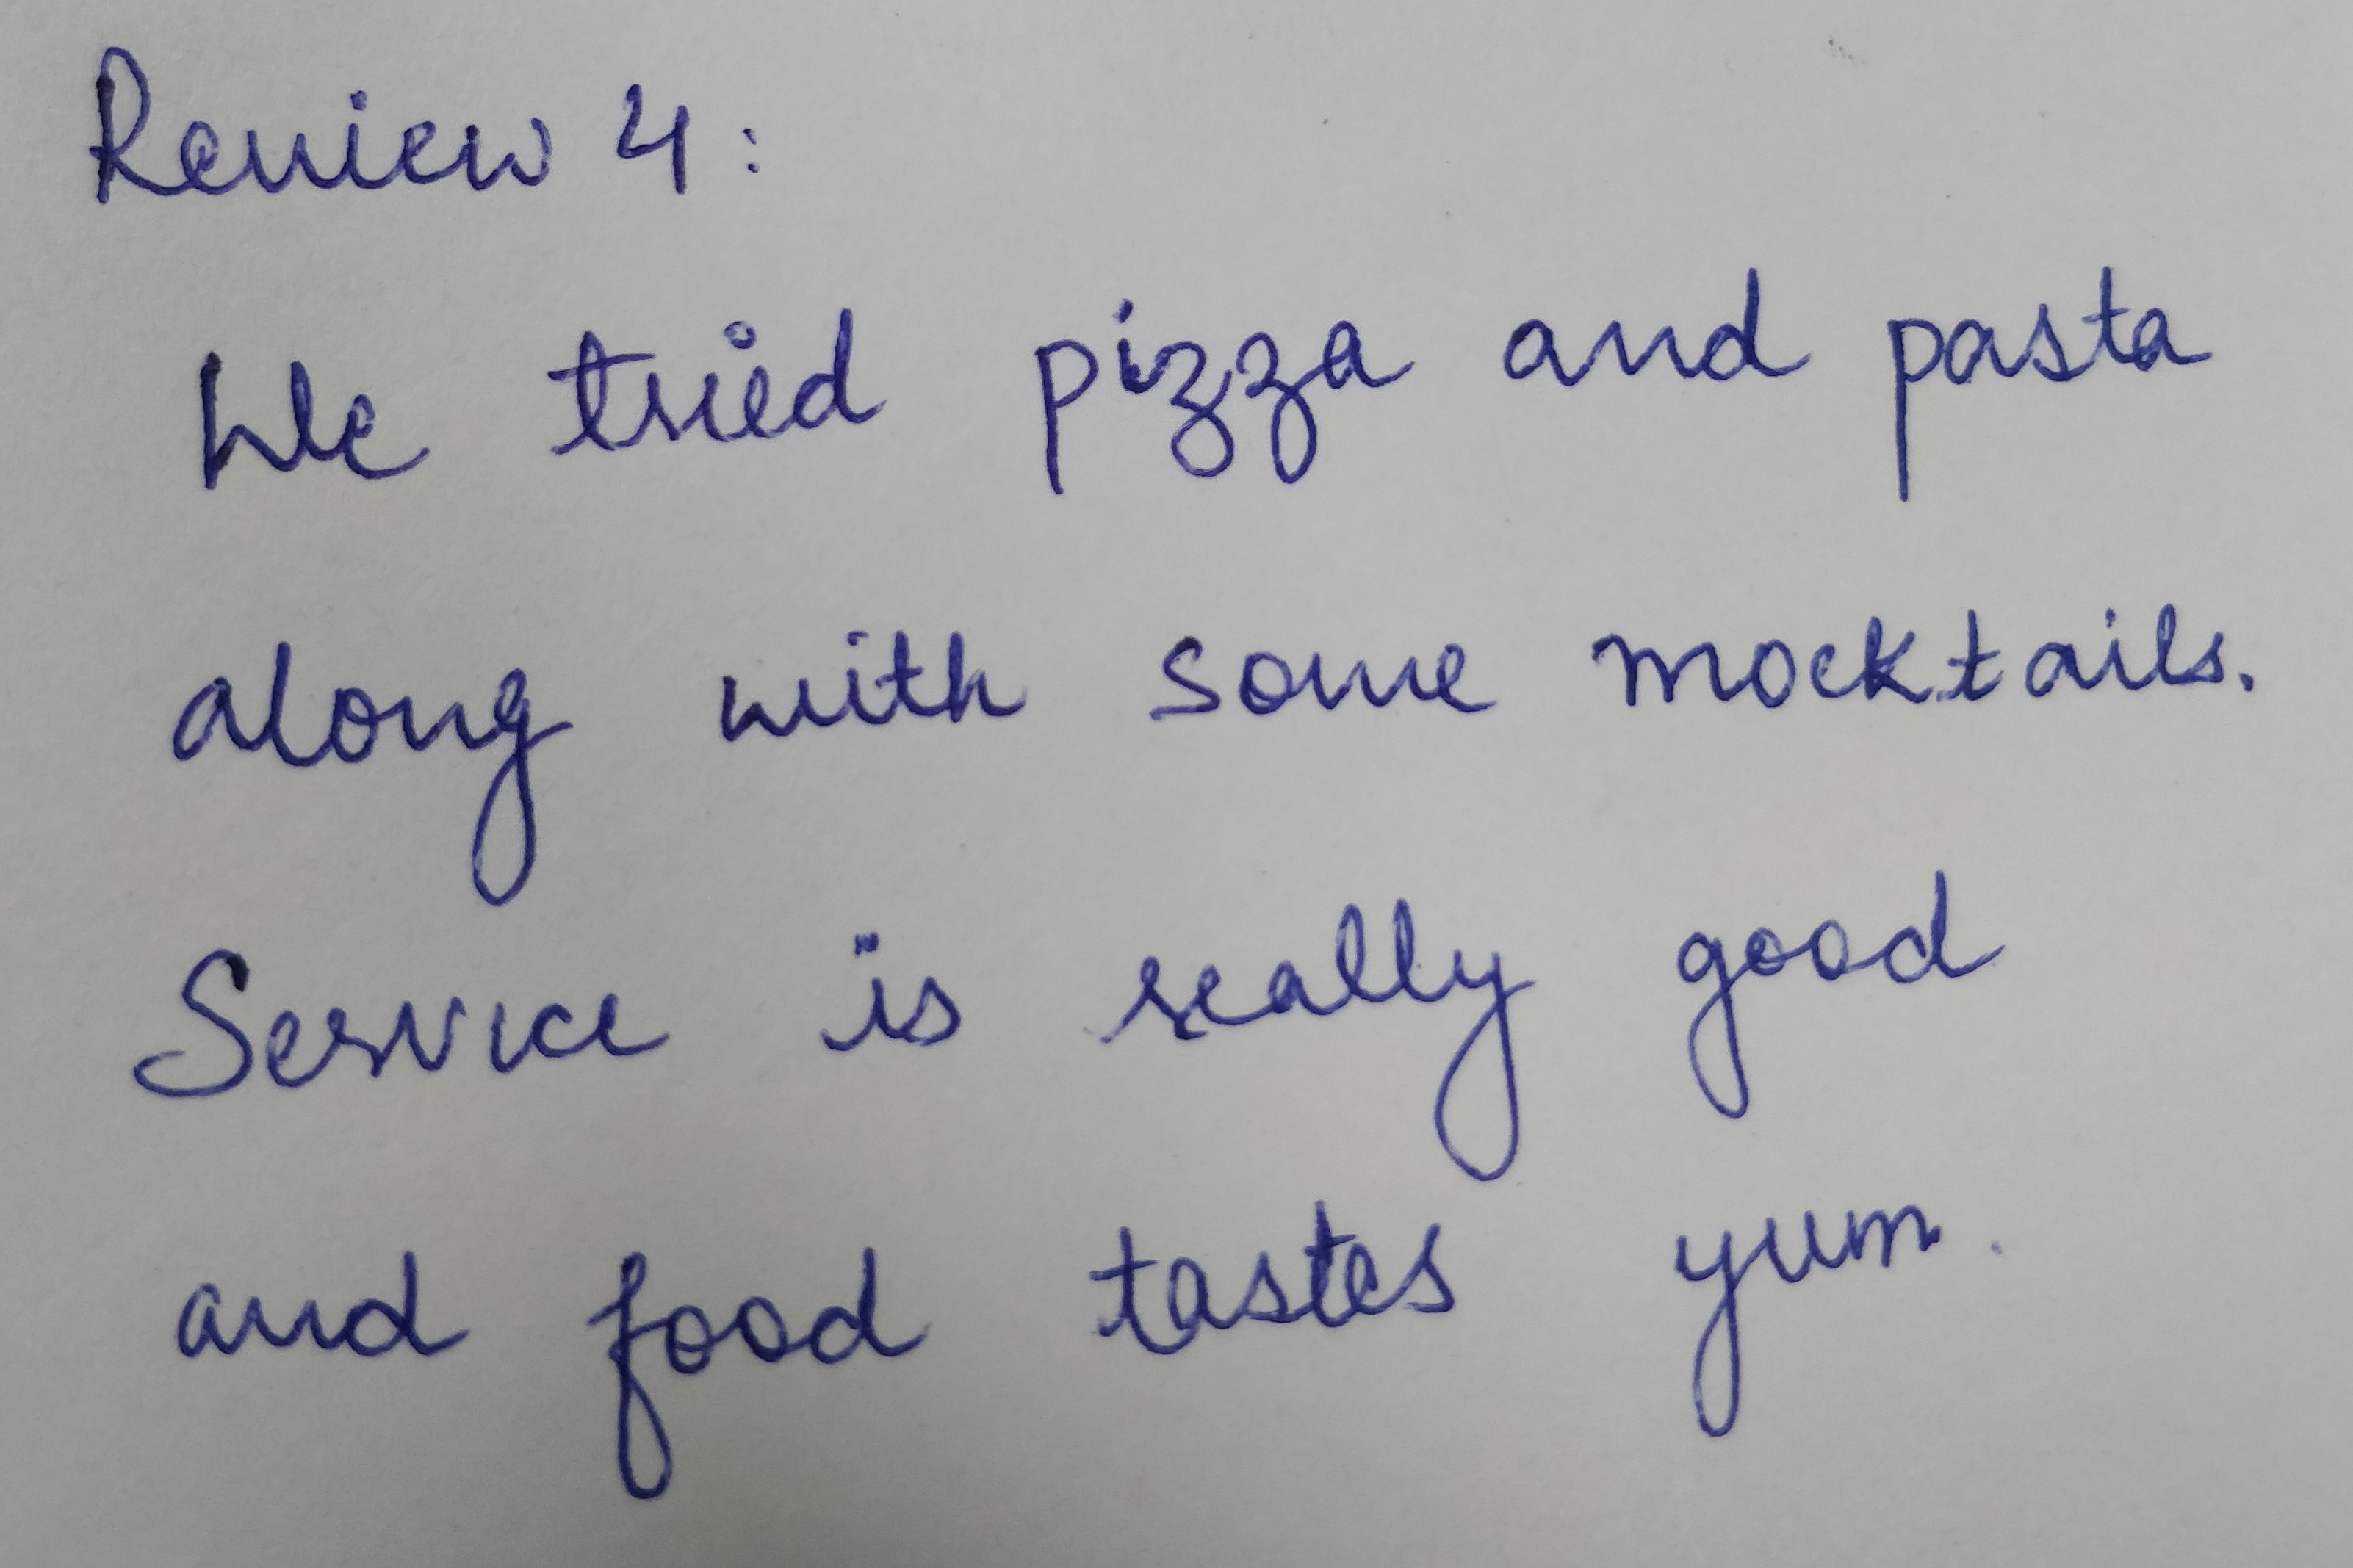 Review 4:
We tried pizza and pasta
along with some mocktails.
Service is really good
and food tastes yum.